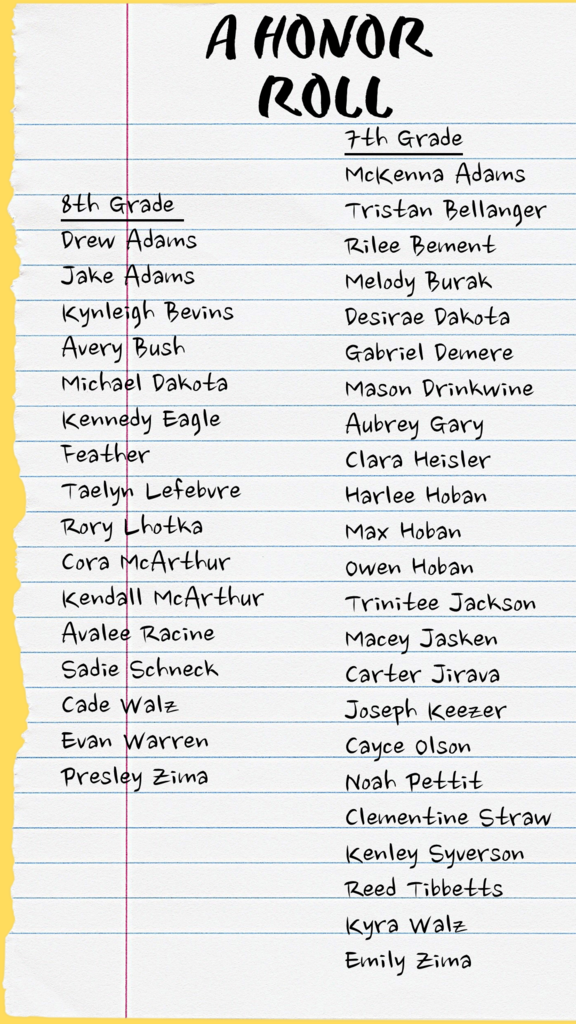 A HONOR
ROLL
8th Grade
Drew Adams
Jake Adams
Kynleigh Bevins
Avery Bush
Michael Dakota
Kennedy Eagle
Feather
Taelyn Lefebvre
Rory Lhotka
Cora McArthur
Kendall McArthur
Avalee Racine
Sadie Schneck
Cade Walz
Evan Warren
Presley Zima
7th Grade
McKenna Adams
Tristan Bellanger
Rilee Bement
Melody Burak
Desirae Dakota
Gabriel Demere
Mason Drinkwine
Aubrey Gary
Clara Heisler
Harlee Hoban
Max Hoban
Owen Hoban
Trinitee Jackson
Macey Jasken
Carter Jirava
Joseph Keezer
Cayce Olson
Noah Pettit
Clementine Straw
Kenley Syverson
Reed Tibbetts
Kyra Walz
Emily Zima